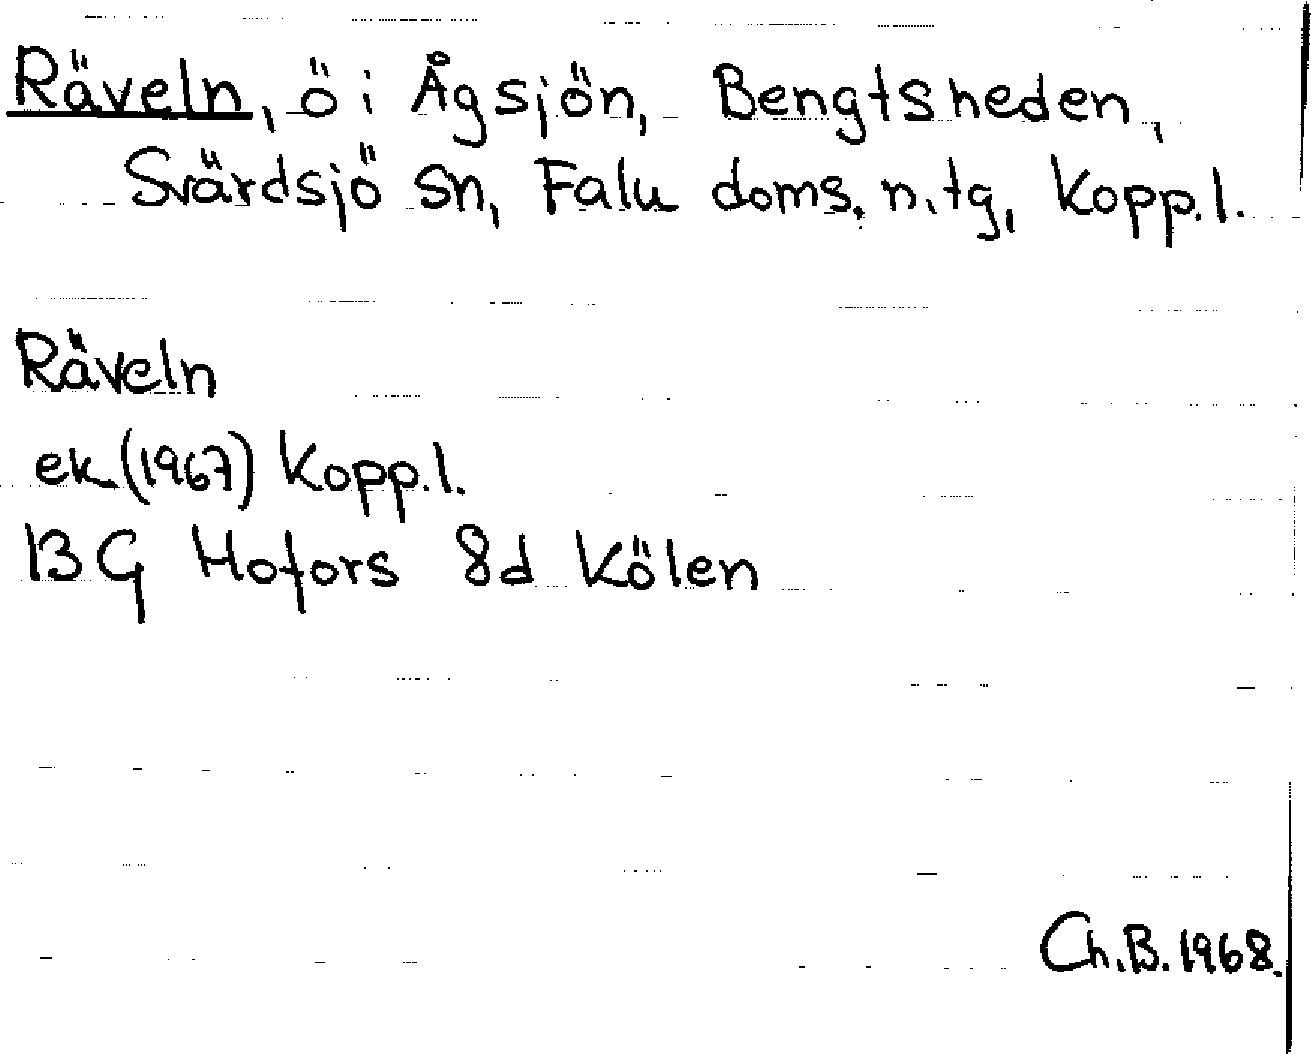 Räveln, ö i Ågsjön, Bengtsheden,
Svärdsjö sn, Falu doms. n. tg, Kopp. l.
Räveln
ek (1967) Kopp. l.
13 G Hofors 8d Kölen
Ch. B. 1968.